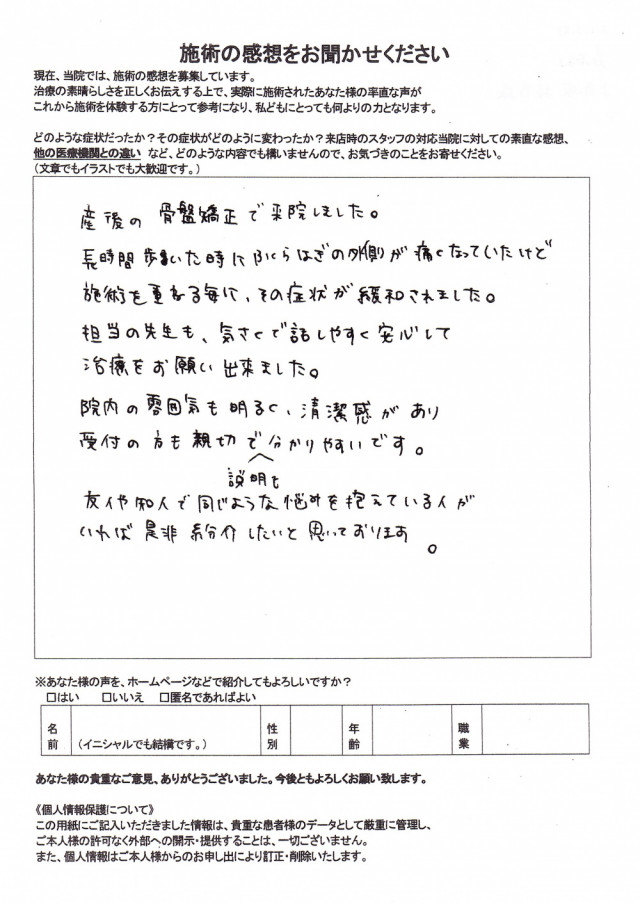 施術の感想をお聞かせください
現在、当院では、施術の感想を募集しています。
治療の素晴らしさを正しくお伝えする上で、実際に施術されたあなた様の率直な声が
これから施術を体験する方にとって参考になり、私どもにとっても何よりの力となります。
どのような症状だったか？その症状がどのように変わったか？来店時のスタッフの対応当院に対しての素直な感想、
他の医療機関との違い など、どのような内容でも構いませんので、お気づきのことをお寄せください。
（文章でもイラストでも大歓迎です。）
産後の骨盤矯正で来院しました。
長時間歩いた時にふくらはぎの外側が痛くなっていたけど
施術を重ねる毎に、その症状が緩和されました。
担当の先生も、気さくで話しやすく安心して
治療をお願い出来ました。
院内の雰囲気も明るく、清潔感があり
受付の方も親切で分かりやすいです。
説明も
友人や知人で同じような悩みを抱えている人が
いれば是非紹介したいと思っております。
※あなた様の声を、ホームページなどで紹介してもよろしいですか？
□はい □いいえ □匿名であればよい
名前 （イニシャルでも結構です。） 性別 年齢 職業
あなた様の貴重なご意見、ありがとうございました。今後ともよろしくお願い致します。
《個人情報保護について》
この用紙にご記入いただきました情報は、貴重な患者様のデータとして厳重に管理し、
ご本人様の許可なく外部への開示・提供することは、一切ございません。
また、個人情報はご本人様からのお申し出により訂正・削除いたします。